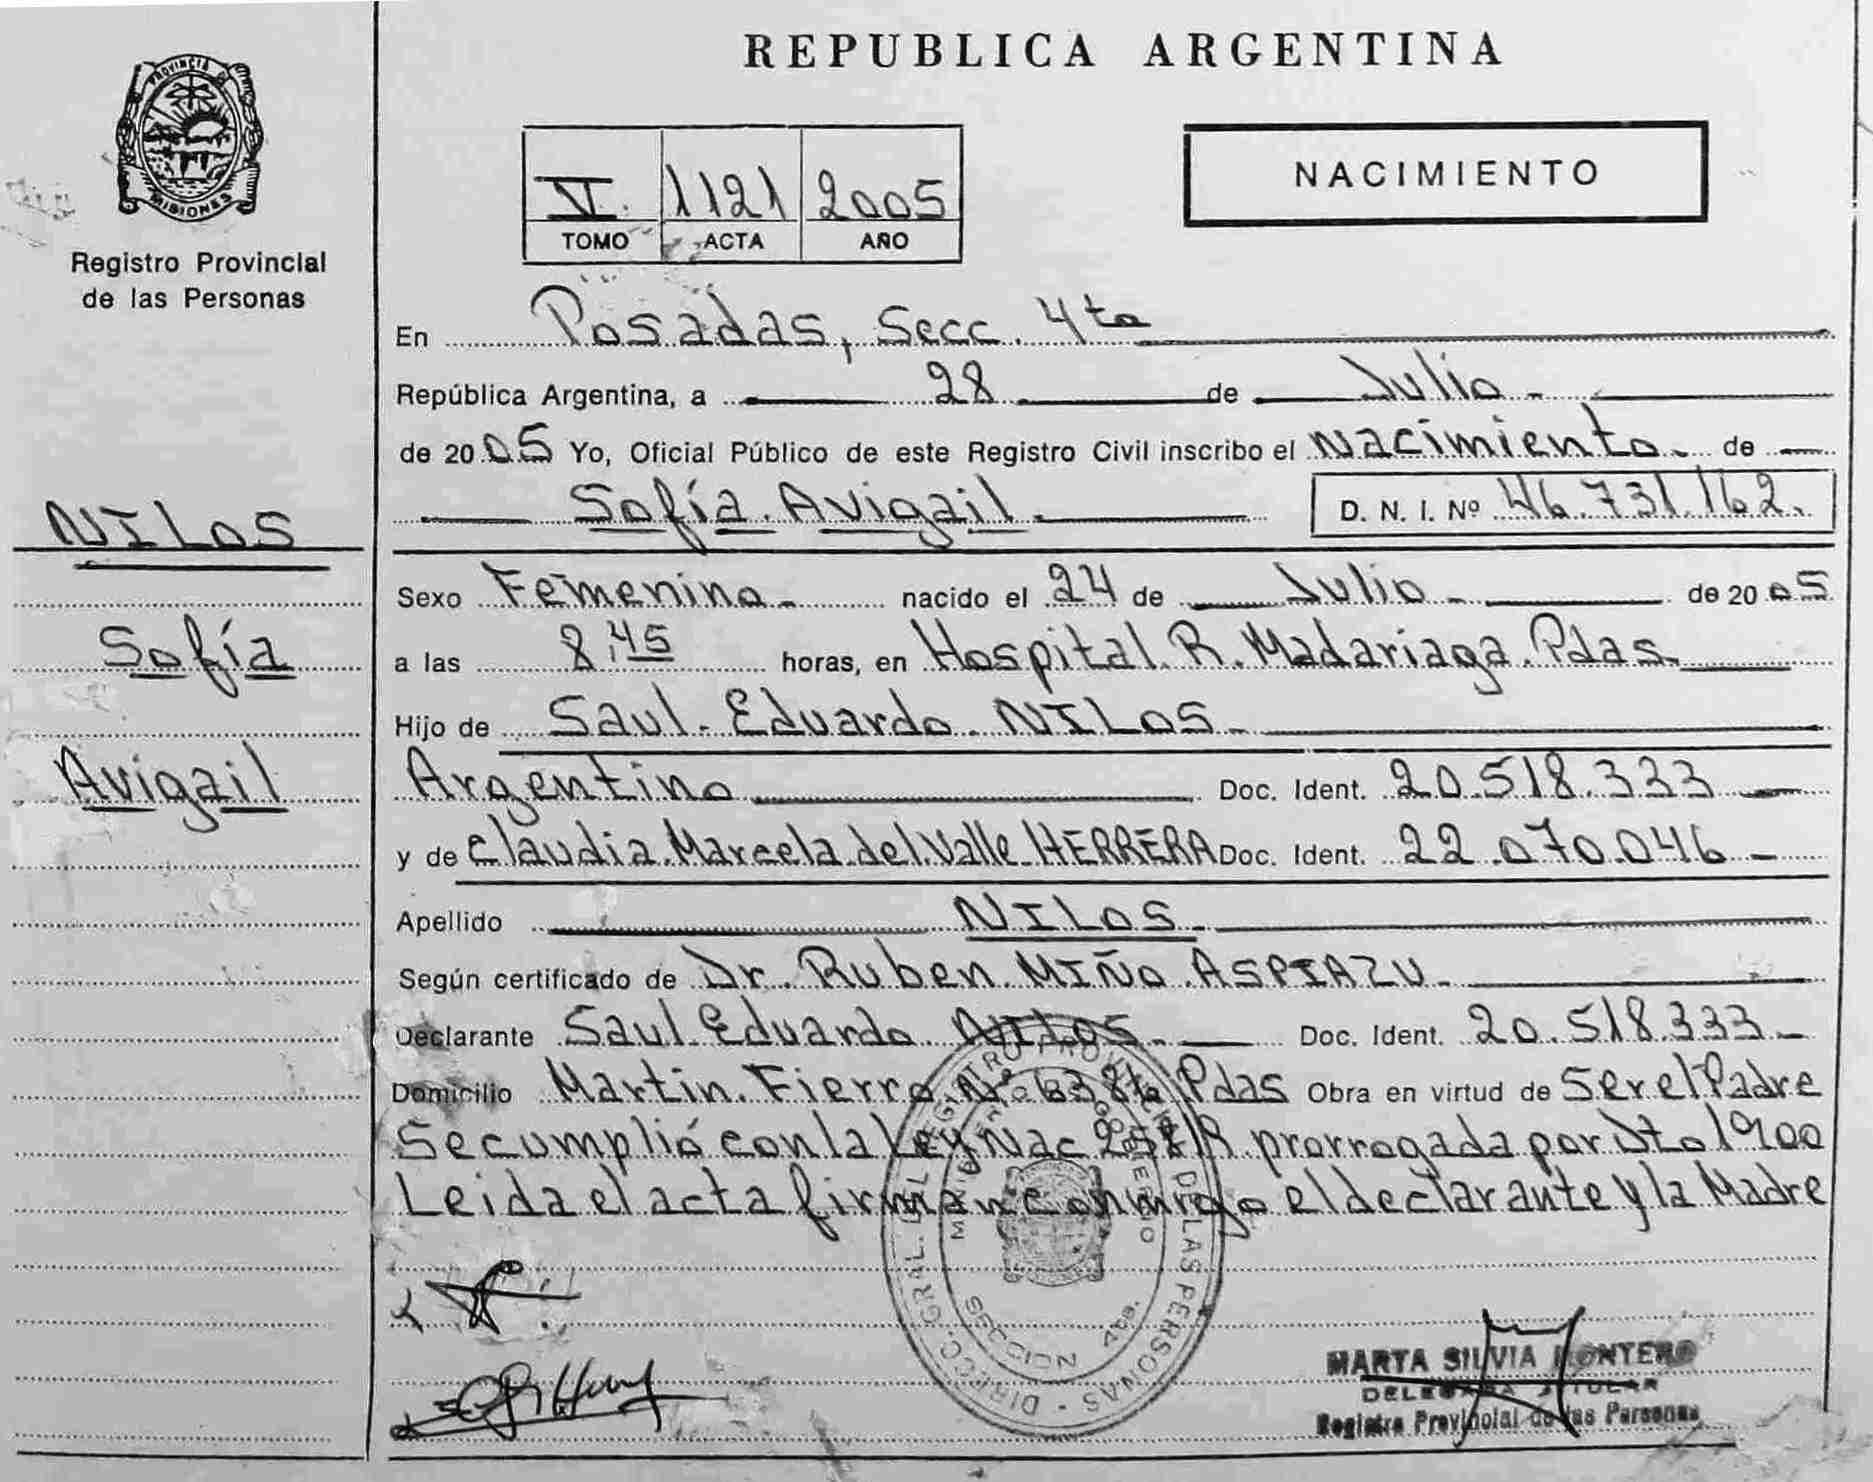 REPUBLICA ARGENTINA
PROVINCIA DE
MISIONES
Registro Provincial
de las Personas
NILOS
Sofía
Avigail
V. 1121 2005
TOMO ACTA AÑO
NACIMIENTO
En Posadas, Secc. 4ta
República Argentina, a 28 de Julio
de 2005 Yo, Oficial Público de este Registro Civil inscribo el Nacimiento de
Sofía Avigail D. N. I. Nº 46.731.162.
Sexo Femenino nacido el 24 de Julio de 2005
a las 8,45 horas, en Hospital R. Madariaga. Pdas
Hijo de Saul Eduardo NILOS
Argentino Doc. Ident. 20.518.333
y de Claudia Marcela del Valle HERRERA Doc. Ident. 22.070.046
Apellido NILOS
Según certificado de Dr. Ruben MIÑO ASPIAZU
Declarante Saul Eduardo NILOS Doc. Ident. 20.518.333
Domicilio Martin Fierro Nº Pdas Obra en virtud de Ser el Padre
Se cumplió con la Ley Nac prorrogada por Dto 1900
Leida el acta firman conmigo el declarante y la Madre
DIRECC. GRAL. DEL REGISTRO PROVINCIAL DE LAS PERSONAS
MINISTERIO DE GOBIERNO
SECCION 4ta.
MARTA SILVIA MONTERO
DELEGADA TITULAR
Registro Provincial de las Personas